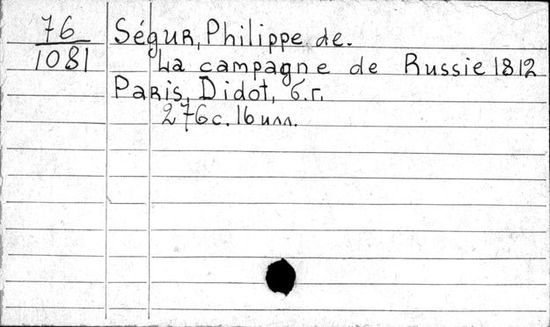 76
1081
Ségur, Philippe de.
La campagne de Russie 1812
Paris, Didot, б.г.
276 с. 16 илл.